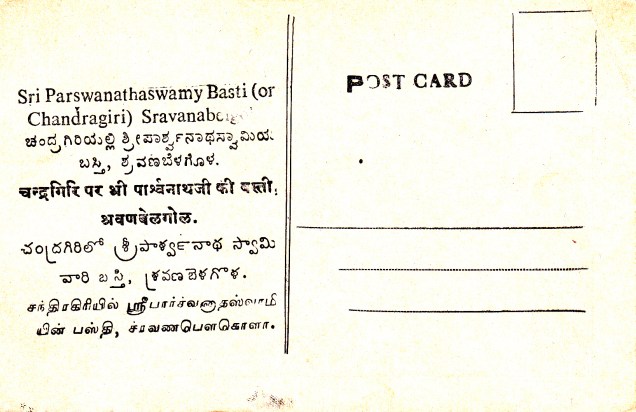 Sri Parswanathaswamy Basti (or
Chandragiri) Sravanabelgola
ಚಂದ್ರಗಿರಿಯಲ್ಲಿ ಶ್ರೀಪಾರ್ಶ್ವನಾಥಸ್ವಾಮಿಯ
ಬಸ್ತಿ, ಶ್ರವಣಬೆಳಗೊಳ.
चन्द्रगिरि पर श्री पार्श्वनाथजी की बस्ती,
श्रवणबेलगोल.
చంద్రగిరిలో శ్రీపార్శ్వనాథ స్వామి
వారి బస్తి, శ్రవణబెళగొళ.
சந்திரகிரியில் ஸ்ரீபார்சவனாதஸ்வாமி
யின் பஸ்தி, சரவணபெளகொளா.
POST CARD